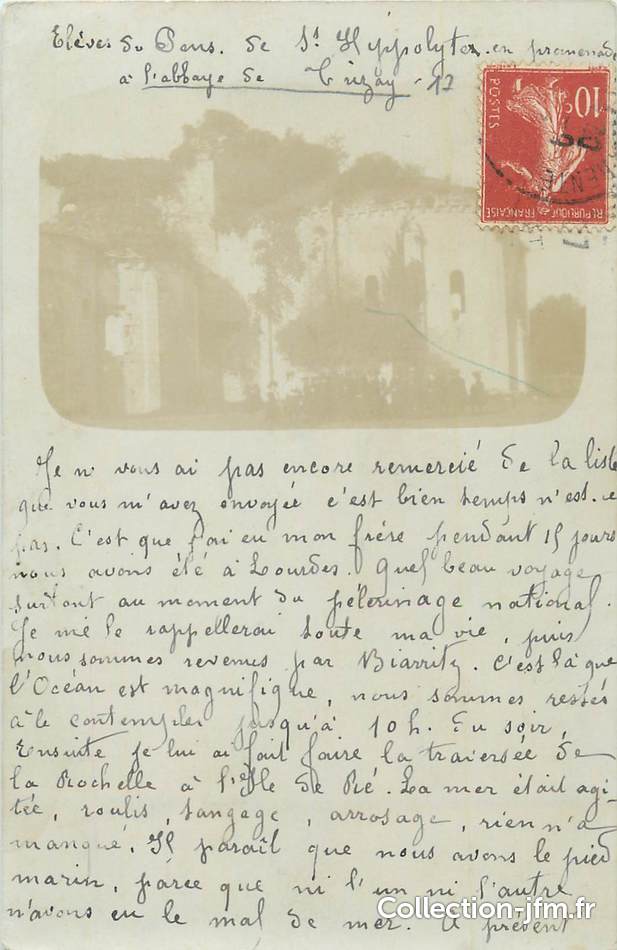 Elèves du Pens. de St Hyppolyte en promenade
à l'abbaye de Trizay - 17
10c
POSTES
REPUBLIQUE FRANÇAISE
Je n vous ai pas encore remercié de la liste
que vous m'avez envoyée c'est bien temps n'est-ce
pas. C'est que j'ai eu mon frére pendant 15 jours
nous avons été à Lourdes. Quel beau voyage
surtout au moment du pélerinage national.
Je me le rappellerai toute ma vie, puis
nous sommes revenus par Biarritz. C'est là que
l'Océan est magnifique, nous sommes restés
à le contempler jusqu'à 10h. du soir,
Ensuite je lui ai fait faire la traversée de
la Rochelle à l'Ile de Ré. La mer était agi-
tée, roulis, tangage, arrosage, rien n'a
manqué. Il paraît que nous avons le pied
marin, parce que ni l'un ni l'autre
n'avons eu le mal de mer. A présent
Collection-jfm.fr